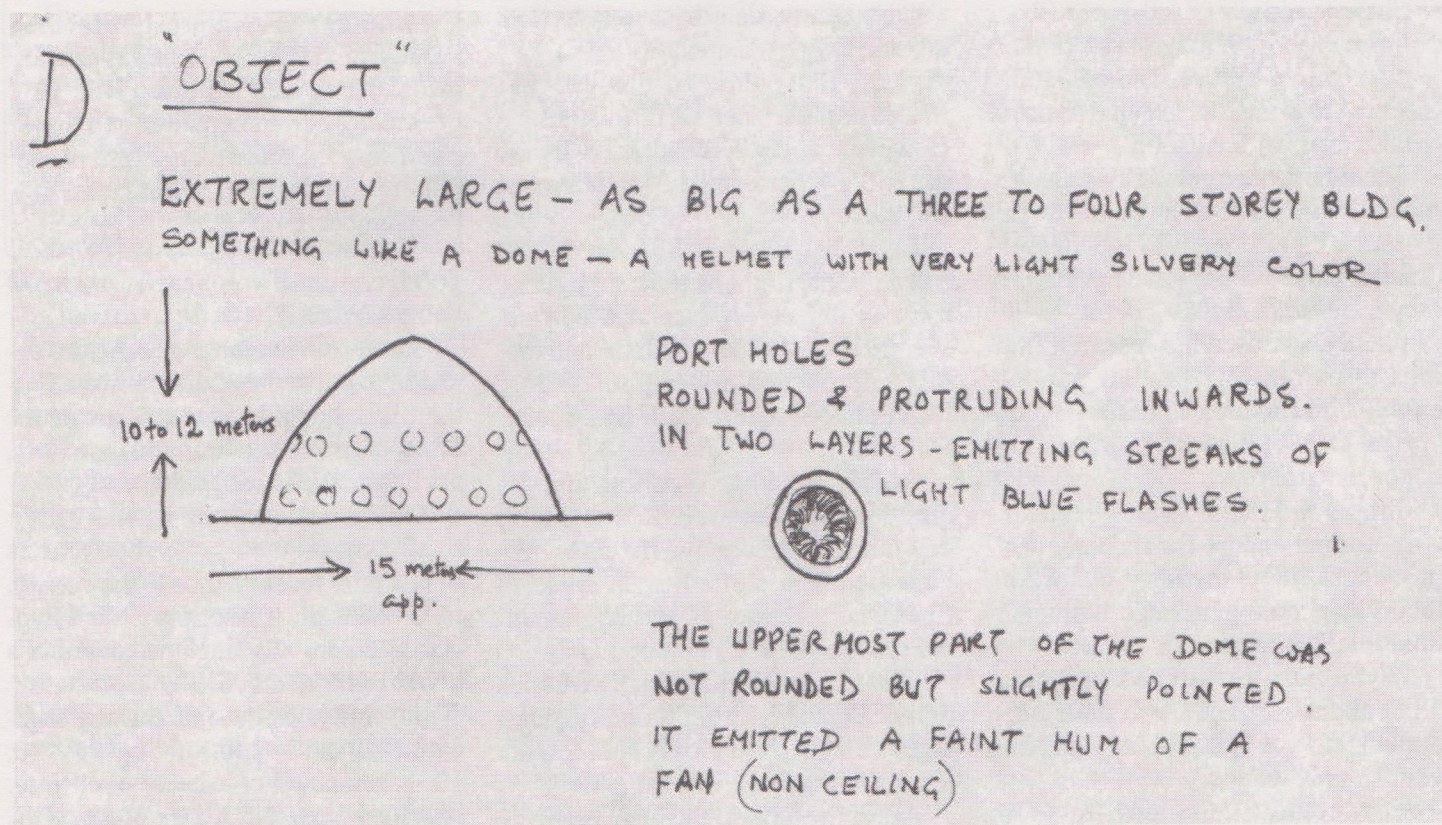 D "OBJECT"
EXTREMELY LARGE – AS BIG AS A THREE TO FOUR STOREY BLDG.
SOMETHING LIKE A DOME – A HELMET WITH VERY LIGHT SILVERY COLOR
10 to 12 meters
15 meters
app.
PORT HOLES
ROUNDED & PROTRUDING INWARDS.
IN TWO LAYERS - EMITTING STREAKS OF
LIGHT BLUE FLASHES.
THE UPPERMOST PART OF THE DOME WAS
NOT ROUNDED BUT SLIGHTLY POINTED.
IT EMITTED A FAINT HUM OF A
FAN (NON CEILING)